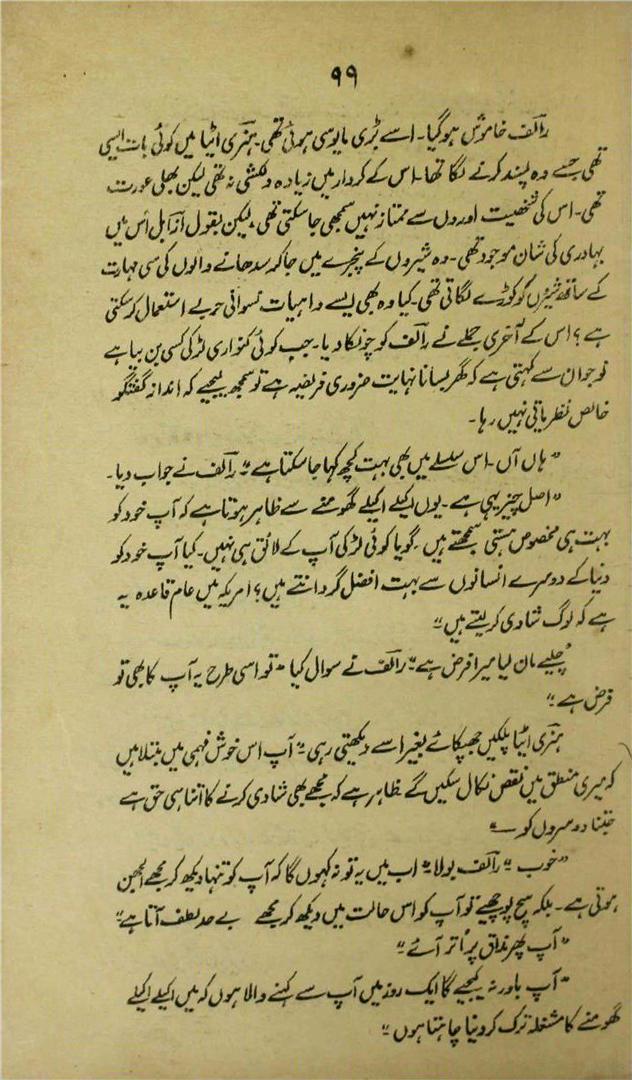 ۹۹
رالف خاموش ہوگیا۔ اسے بڑی مایوسی ہوئی تھی۔ ہنری اٹیا میں کوئی بات ایسی
تھی جسے وہ پسند کرنے لگا تھا۔ اس کے کردار میں زیادہ دلکشی نہ تھی لیکن بھلی عورت
تھی۔ اس کی شخصیت اوروں سے ممتاز نہیں سمجھی جا سکتی تھی، لیکن بقول ازابل اُس میں
بہادری کی شان موجود تھی۔ وہ شیروں کے پنجرے میں جا کر سدھانے والوں کی سی مہارت
کے ساتھ شیروں کو کوڑے لگاتی تھی۔ کیا وہ بھی ایسے واہیات نسوانی حربے استعمال کرسکتی
ہے؟ اس کے آخری جملے نے رالف کو چونکا دیا۔ جب کوئی کنواری لڑکی کسی بن بیاہے
نوجوان سے کہتی ہے کہ گھر بسانا نہایت ضروری فریضہ ہے تو سمجھ لیجیے کہ اندازِ گفتگو
خالص نظریاتی نہیں رہا۔
”ہاں آں۔ اس سلسلے میں بھی بہت کچھ کہا جا سکتا ہے“ رالف نے جواب دیا۔
”اصل چیز یہی ہے۔ یوں اکیلے اکیلے گھومنے سے ظاہر ہوتا ہے کہ آپ خود کو
بہت ہی مخصوص ہستی سمجھتے ہیں۔ گویا کوئی لڑکی آپ کے لائق ہی نہیں۔ کیا آپ خود کو
دنیا کے دوسرے انسانوں سے بہت افضل گردانتے ہیں؟ امریکہ میں عام قاعدہ یہ
ہے کہ لوگ شادی کر لیتے ہیں“
”چلیے مان لیا میرا فرض ہے“ رالف نے سوال کیا ”تو اسی طرح یہ آپ کا بھی تو
فرض ہے“
ہنری اٹیا پلکیں جھپکائے بغیر اسے دیکھتی رہی ”آپ اس خوش فہمی میں مبتلا ہیں
کہ میری منطق میں نقص نکال سکیں گے۔ ظاہر ہے کہ مجھے بھی شادی کرنے کا اتنا ہی حق ہے
جتنا دوسروں کو —“
”خوب“ رالف بولا ”اب میں یہ تو نہ کہوں گا کہ آپ کو تنہا دیکھ کر مجھے الجھن
ہوتی ہے۔ بلکہ سچ پوچھیے تو آپ کو اس حالت میں دیکھ کر مجھے بے حد لطف آتا ہے“
”آپ پھر مذاق پر اُتر آئے“
”آپ باور نہ کیجیے گا ایک روز میں آپ سے کہنے والا ہوں کہ میں اکیلے اکیلے
گھومنے کا مشغلہ ترک کر دینا چاہتا ہوں“